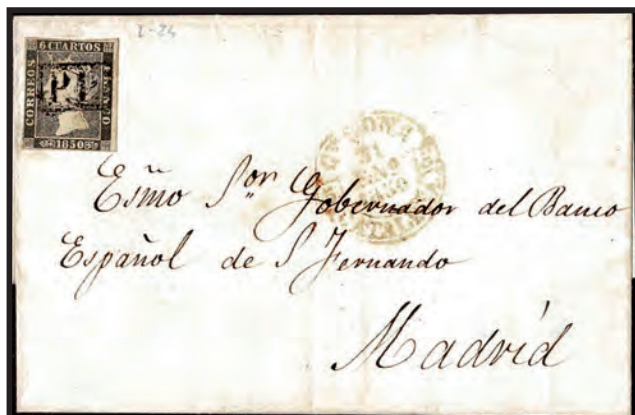 1-24
6 CUARTOS
CORREOS
FRANCO
1850
Esmo Sor Gobernador del Banco
Español de S Fernando
Madrid